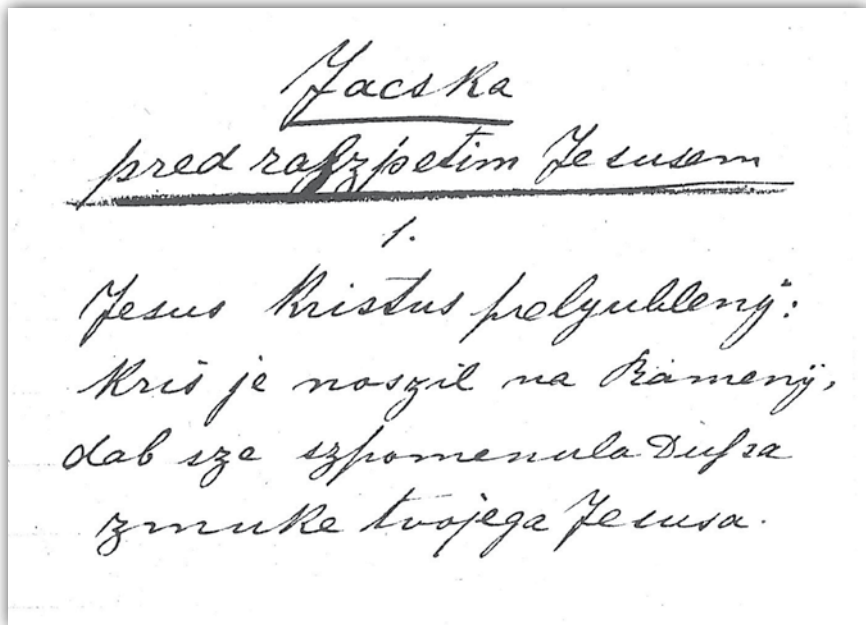 Jacska
pred raſzpetim Jesusem
1.
Jesus Kristus prelyubleny:
Kris je noszil na Rameny,
dab sze szpomenula Duſsa
z muke tvojega Jesusa.